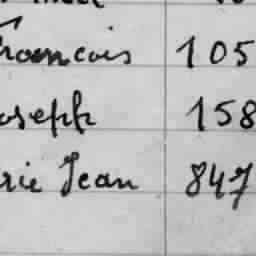 francois 105
oseph 158
rie Jean 847